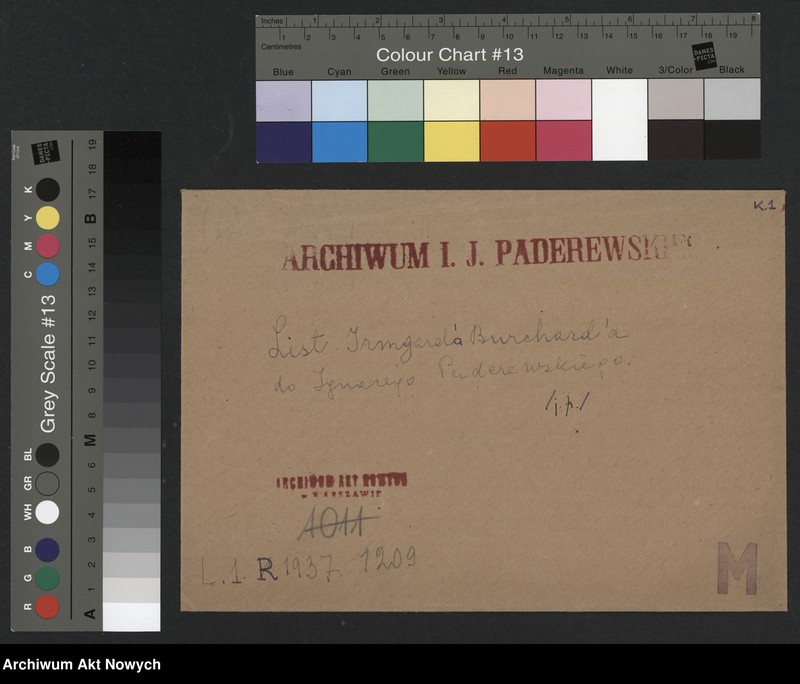 Inches 1 2 3 4 5 6 7 8
Centimetres 1 2 3 4 5 6 7 8 9 10 11 12 13 14 15 16 17 18 19
Colour Chart #13
DANES-PICTA.COM
Blue Cyan Green Yellow Red Magenta White 3/Color Black
DANES-PICTA.COM
Grey Scale #13
R G B WH GR BL C M Y K
A 1 2 3 4 5 6 M 8 9 10 11 12 13 14 15 B 17 18 19
K.1
ARCHIWUM I. J. PADEREWSKI
List Irmgard'a Burchard'a
do Ignacego Paderewskiego.
/j.p./
ARCHIWUM AKT NOWYCH
w WARSZAWIE
1011
L.1 R 1937. 1209
M
Archiwum Akt Nowych